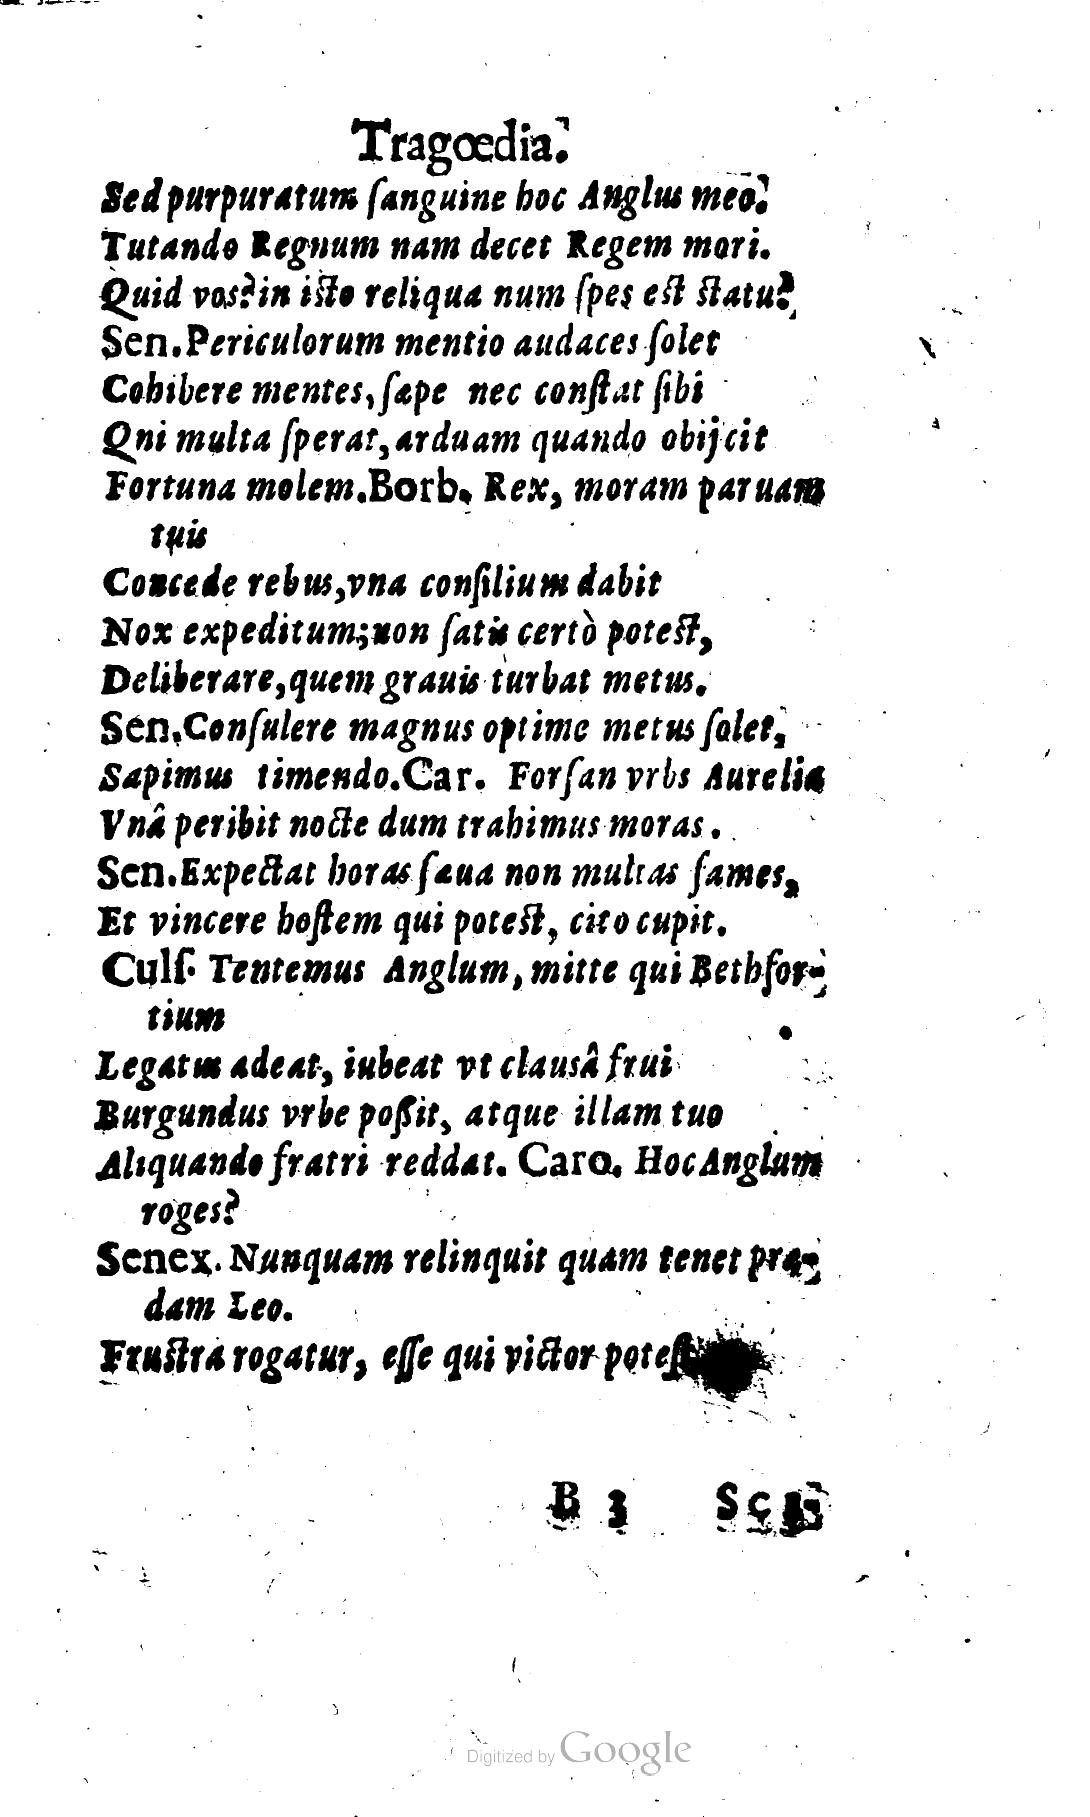 Tragœdia.
Sed purpuratum ſanguine hoc Anglus meo.
Tutando Regnum nam decet Regem mori.
Quid vos? in iſto reliqua num ſpes eſt ſtatu?
Sen. Periculorum mentio audaces ſolet
Cohibere mentes, ſæpe nec conſtat ſibi
Qni multa ſperat, arduam quando obijcit
Fortuna molem. Borb. Rex, moram paruam
tuis
Concede rebus, vna conſilium dabit
Nox expeditum; non ſatis certò poteſt,
Deliberare, quem grauis turbat metus.
Sen. Conſulere magnus optime metus ſolet,
Sapimus timendo. Car. Forſan vrbs Aurelia
Vnâ peribit nocte dum trahimus moras.
Sen. Expectat horas ſæua non multas fames,
Et vincere hoſtem qui poteſt, cito cupit.
Culſ. Tentemus Anglum, mitte qui Bethfor-
tium
Legatus adeat, iubeat vt clausâ frui
Burgundus vrbe poßit, atque illam tuo
Aliquando fratri reddat. Caro. Hoc Anglum
roges?
Senex. Nunquam relinquit quam tenet præ-
dam Leo.
Fruſtra rogatur, eſſe qui victor poteſt
B 3 Sce-
Digitized by Google